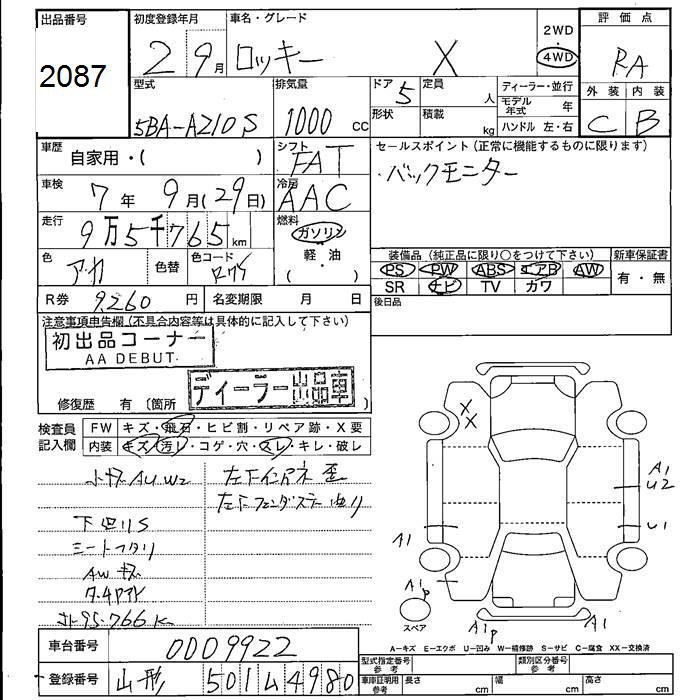 出品番号
2087
初度登録年月
2 9月
車名・グレード
ロッキー X
2WD
4WD
評価点
RA
外装 内装
C B
型式
5BA-A210S
排気量
1000 cc
ドア 5
定員 人
形状
積載 kg
ディーラー・並行
モデル年式 年
ハンドル 左・右
車歴
自家用・( )
シフト
FAT
セールスポイント (正常に機能するものに限ります)
バックモニター
車検
7年 9月(29日)
冷房
AAC
走行
9万5千765km
燃料
ガソリン
軽・油
( )
色
アカ
色替
色コード
装備品 (純正品に限り○をつけて下さい)
新車保証書
PS PW ABS エアB AW
有・無
SR ナビ TV カワ
R券 9,260円
名変期限 月 日
後日品
注意事項申告欄 (不具合内容等は具体的に記入して下さい)
初出品コーナー
AA DEBUT.
ディーラー出品車
修復歴 有 (箇所
検査員
記入欄
FW キズ・飛石・ヒビ割・リペア跡・X要
内装 キズ・汚レ・コゲ・穴・スレ・キレ・破レ
小キズ AU W2
左下インパネ歪
左下フェンダステー曲り
下回りS
シートスタリ
AWキズ
95.766K
XX
A1
U2
U1
A1
A1P
A1P
A1P
スペア
A-キズ E-エクボ U-凹み W-補修跡 S-サビ C-腐食 XX-交換済
車台番号
0009922
登録番号
山形 501ム4980
型式指定番号
参考
類別区分番号
参考
車庫証明用
参考
長さ cm
幅 cm
高さ cm